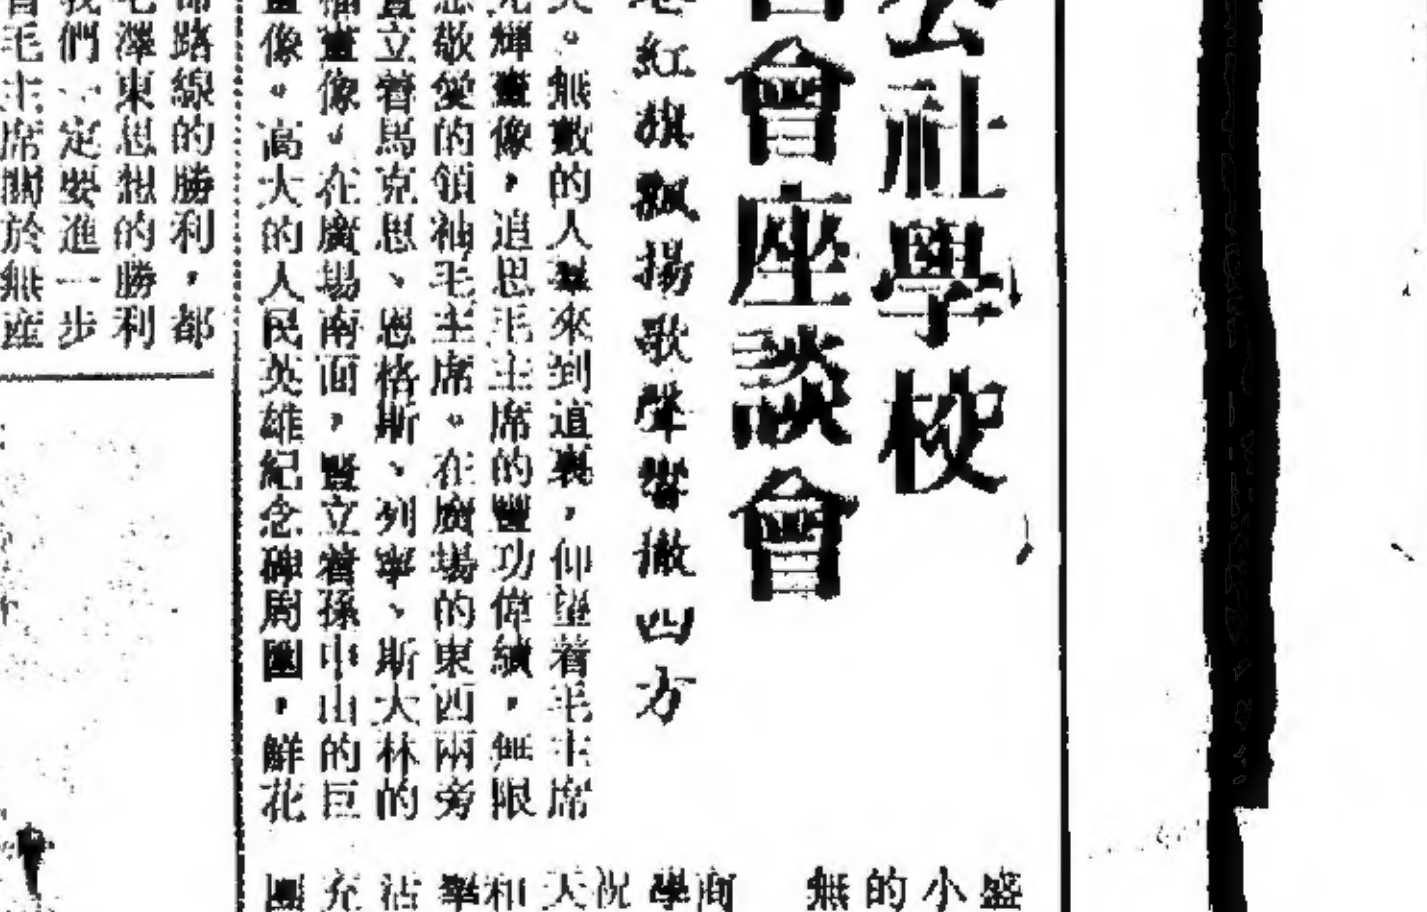 公社學校
會座談會
紅旗飄揚歌聲響徹四方
。無數的人羣來到這裏，仰望着毛主席
光輝畫像，追思毛主席的豐功偉績，無限
敬愛的領袖毛主席。在廣場的東西兩旁
豎立着馬克思、恩格斯、列寧、斯大林的
畫像。在廣場南面，豎立着孫中山的巨
畫像。高大的人民英雄紀念碑周圍，鮮花
路線的勝利，都
毛澤東思想的勝利
我們一定要進一步
毛主席關於無產
盛
小
的
無
商
學
祝
天
和
舉
沽
充
團